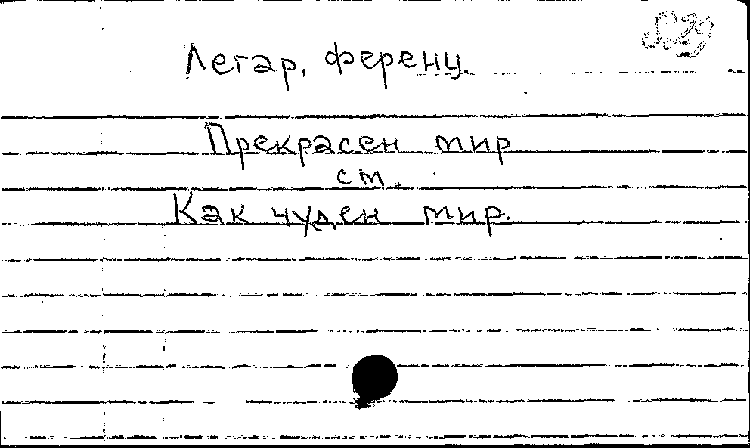 Легар, Ференц.
Прекрасен мир
см.
Как чуден мир.